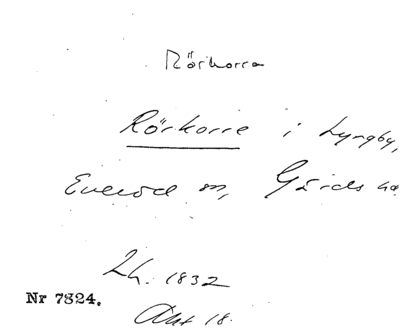 Rörkorra
Rörkorre i Lyngby,
Everöd sn, Gärds hd.
Lh. 1832
Nr 7324.
Akt 18.